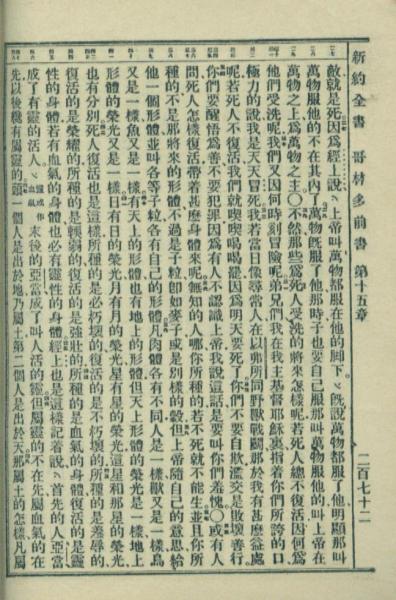 新約全書 哥林多前書 第十五章 二百七十二
敵就是死因爲經上說上帝叫萬物都服在他的脚下旣說萬物都服了他明顯那叫
萬物服他的不在其內了萬物旣服了他那時子也要自己服那叫萬物服他的叫上帝在
萬物之上爲萬物之主○不然那些爲死人受洗的將來怎樣呢若死人總不復活因何爲
他們受洗呢我們又因何時刻冒險呢弟兄們我在我主基督耶穌裏指着你們所誇的口
極力的說我是天天冒死我若當日像尋常人在以弗所同野獸戰鬬那於我有甚麼益處
呢若死人不復活我們就喫喫喝喝罷因爲明天要死了你們不要自欺濫交是敗壞善行
你們要醒悟爲善不要犯罪因爲有人不認識上帝我說這話是要叫你們羞愧○或有人
問死人怎樣復活帶着甚麼身體來呢無知的人哪你所種的若不死就不能生並且你所
種的不是那將來的形體不過是子粒卽如麥子或是別樣的穀但上帝隨自己的意思給
他一個形體並叫各等子粒各有自己的形體凡肉體各有不同人是一樣獸又是一樣鳥
又是一樣魚又是一樣有天上的形體也有地上的形體但天上形體的榮光是一樣地上
形體的榮光又是一樣日有日的榮光月有月的榮光星有星的榮光這星和那星的榮光
也有分別死人復活也是這樣所種的是必朽壞的復活的是不朽壞的所種的是羞辱的
復活的是榮耀的所種的是輭弱的復活的是強壯的所種的是血氣的身體復活的是靈
性的身體若有血氣的身體也必有靈性的身體經上也是這樣記着說首先的人亞當
成了有靈的活人末後的亞當成了叫人活的靈但屬靈的不在先屬血氣的在
先以後纔有屬靈的頭一個人是出於地乃屬土第二個人是出於天那屬土的怎樣凡屬